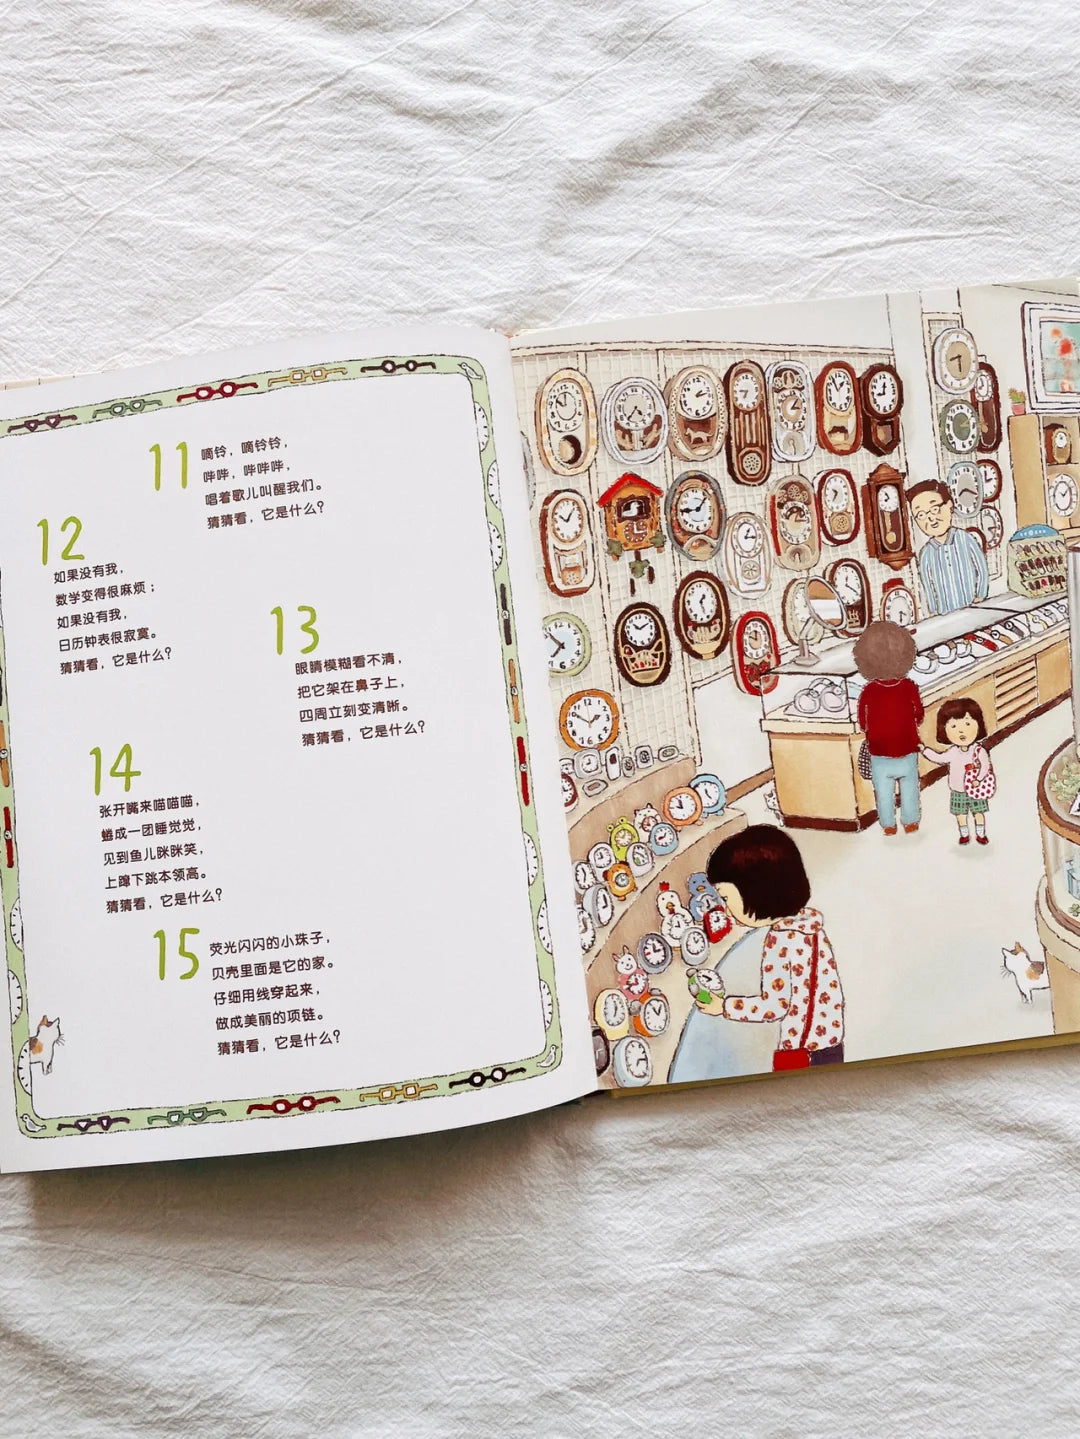 11
嘀铃，嘀铃铃，
哔哔，哔哔哔，
唱着歌儿叫醒我们。
猜猜看，它是什么？
12
如果没有我，
数学变得很麻烦；
如果没有我，
日历钟表很寂寞。
猜猜看，它是什么？
13
眼睛模糊看不清，
把它架在鼻子上，
四周立刻变清晰。
猜猜看，它是什么？
14
张开嘴来喵喵喵，
蜷成一团睡觉觉，
见到鱼儿眯眯笑，
上蹿下跳本领高。
猜猜看，它是什么？
15
荧光闪闪的小珠子，
贝壳里面是它的家。
仔细用线穿起来，
做成美丽的项链。
猜猜看，它是什么？